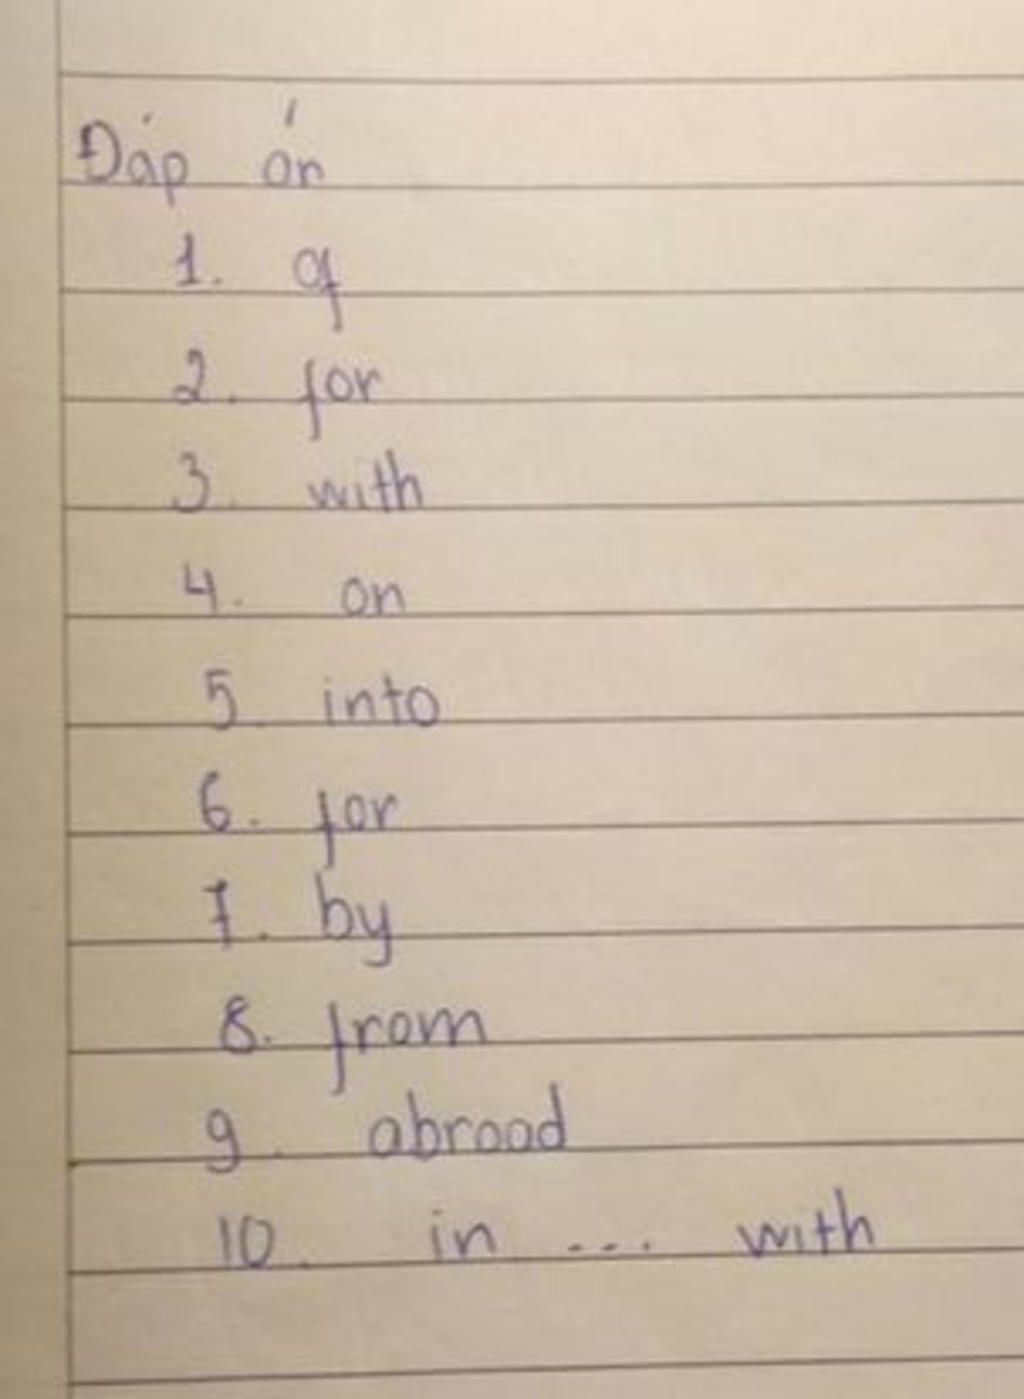 Đáp án
1. of
2. for
3. with
4. on
5. into
6. for
7. by
8. from
9. abroad
10. in ... with